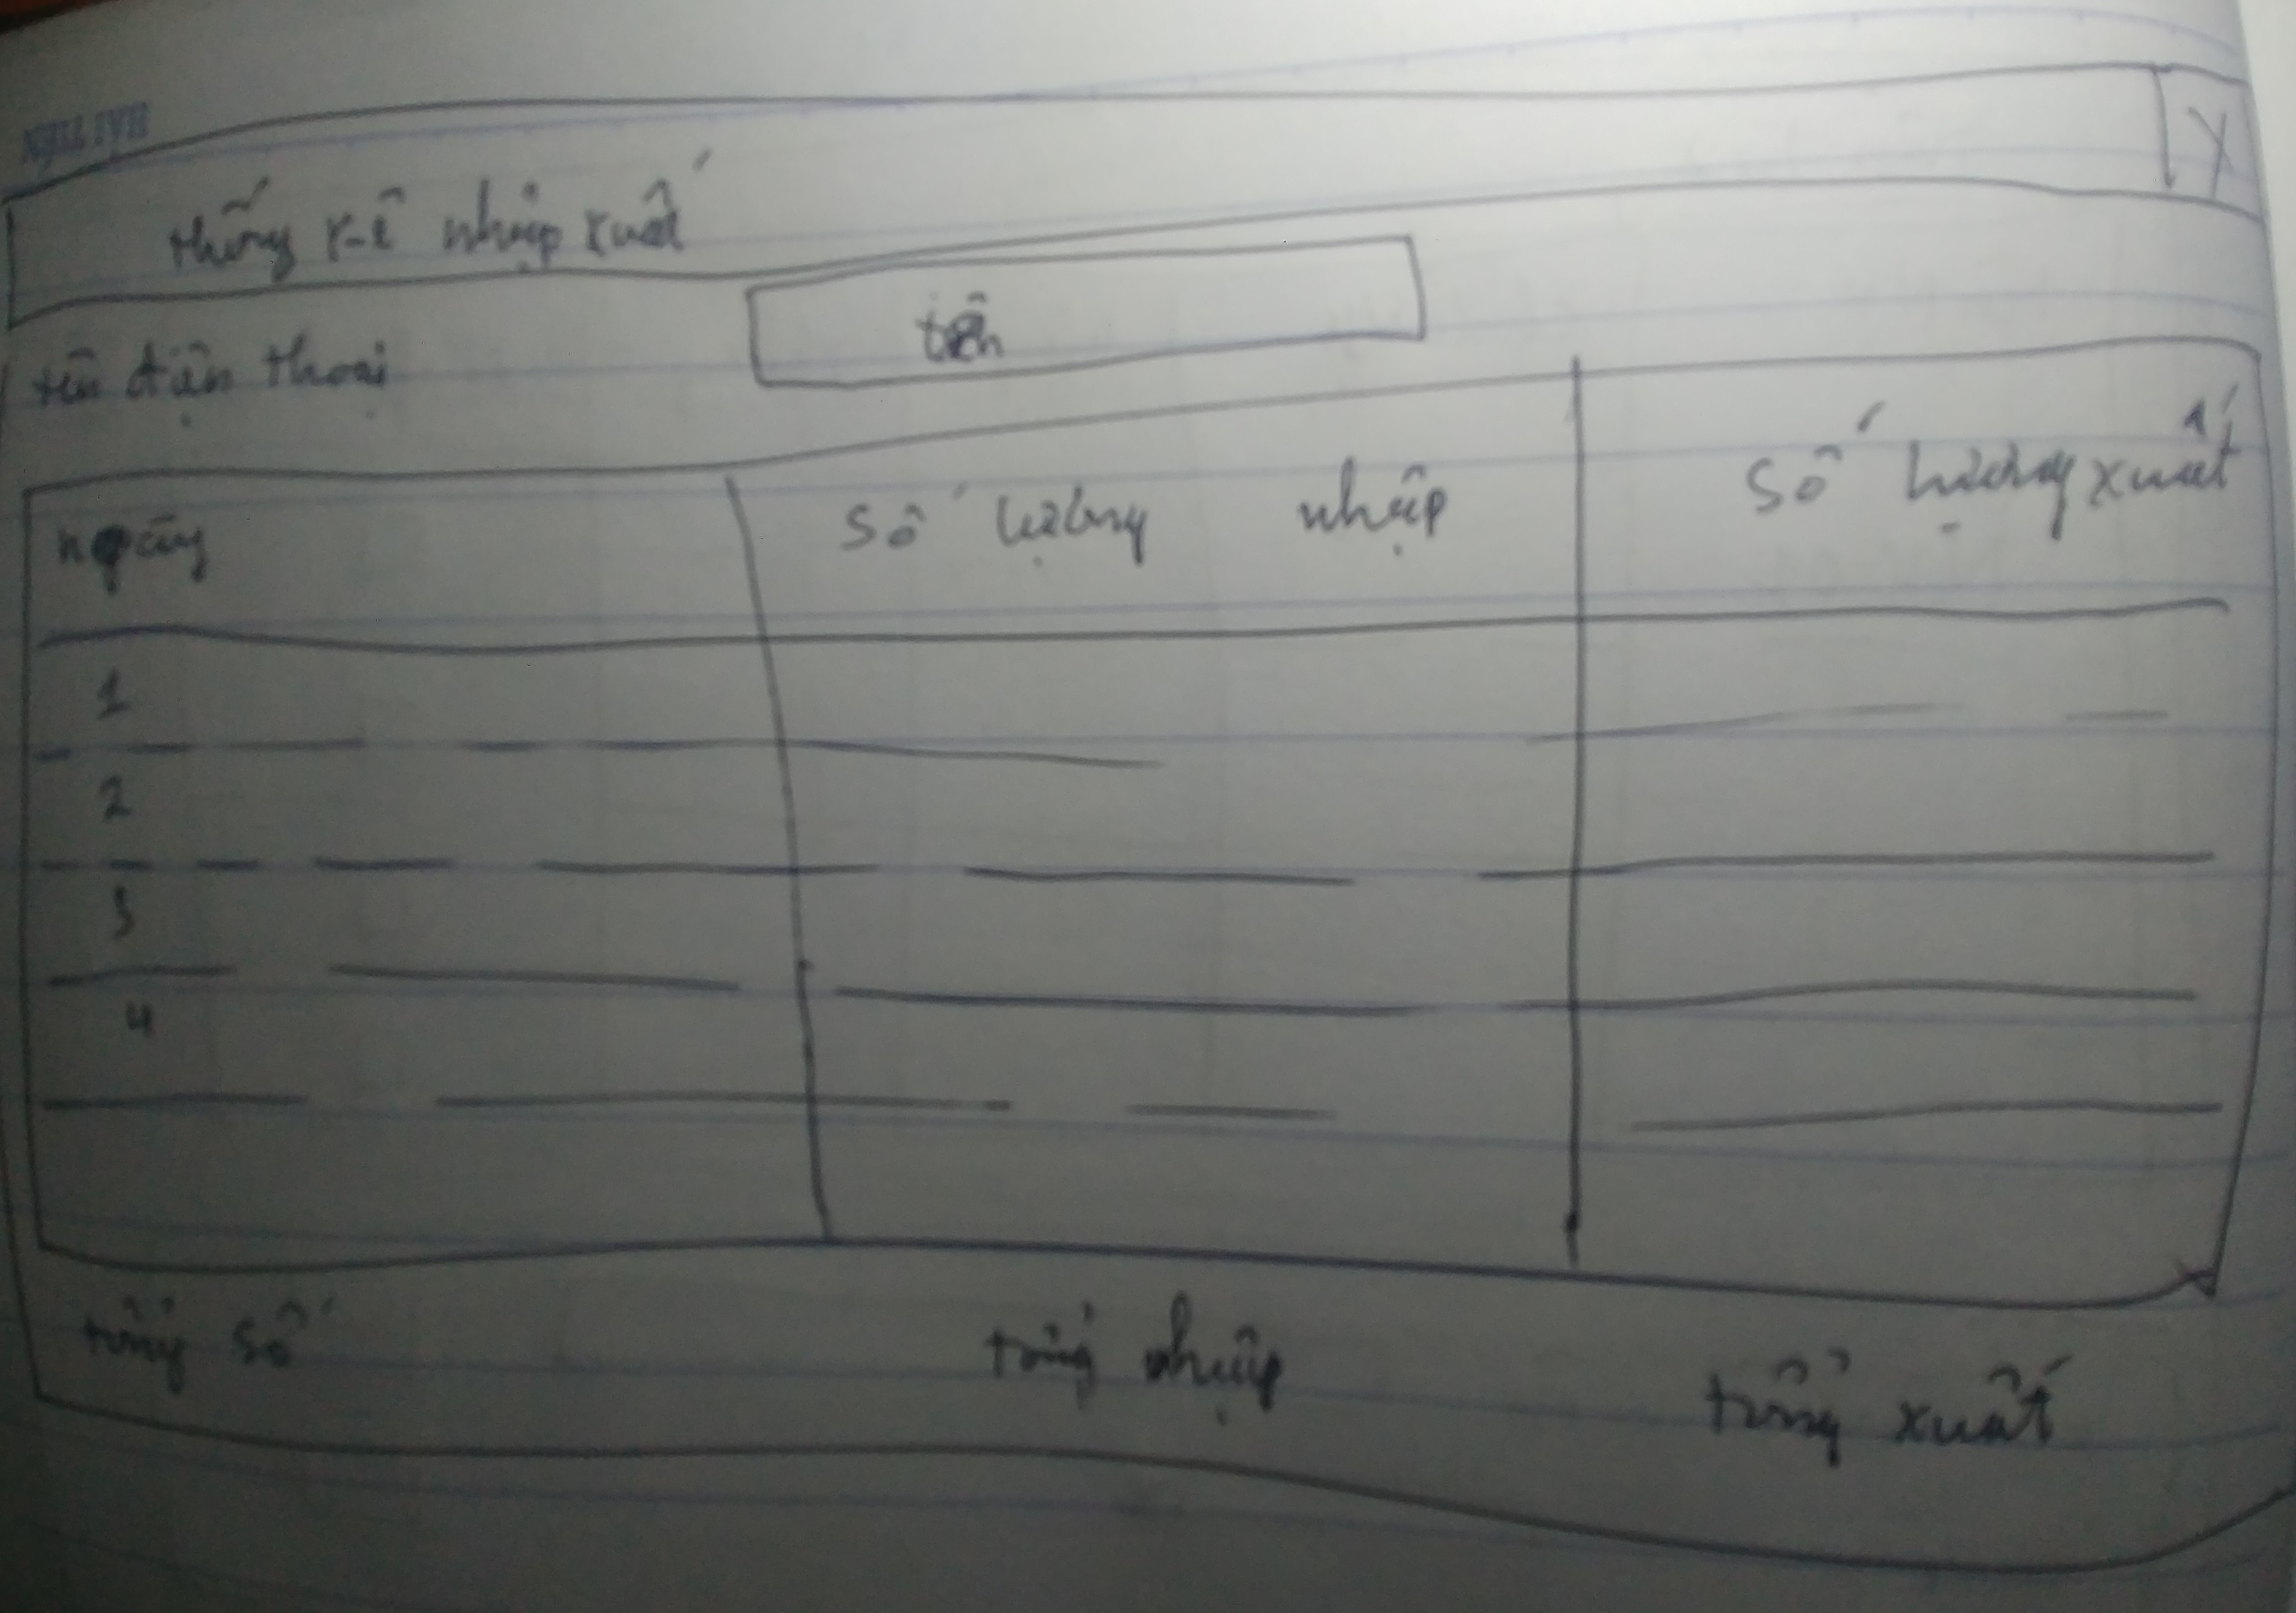 HẢI TIẾN
X
thống kê nhập xuất
tên điện thoại
tên
ngày
số lượng nhập
số lượng xuất
1
2
3
4
tổng số
tổng nhập
tổng xuất